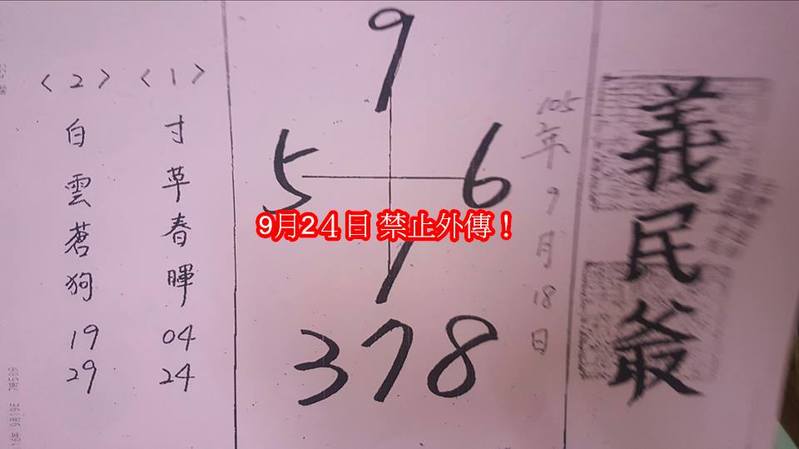 義民爺
105年9月18日
9
5 6
1
378
〈1〉
寸草春暉
04
24
〈2〉
白雲蒼狗
19
29
9月24日 禁止外傳！